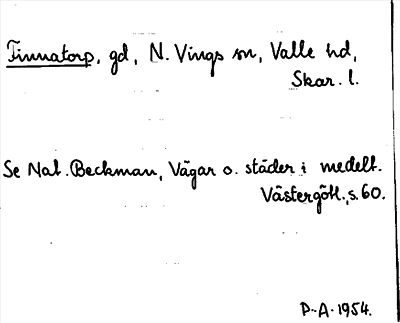 Finnatorp, gd, N. Vings sn, Valle hd,
Skar. l.
Se Nat. Beckman, Vägar o. städer i medelt.
Västergötl., s. 60.
P-A- 1954.